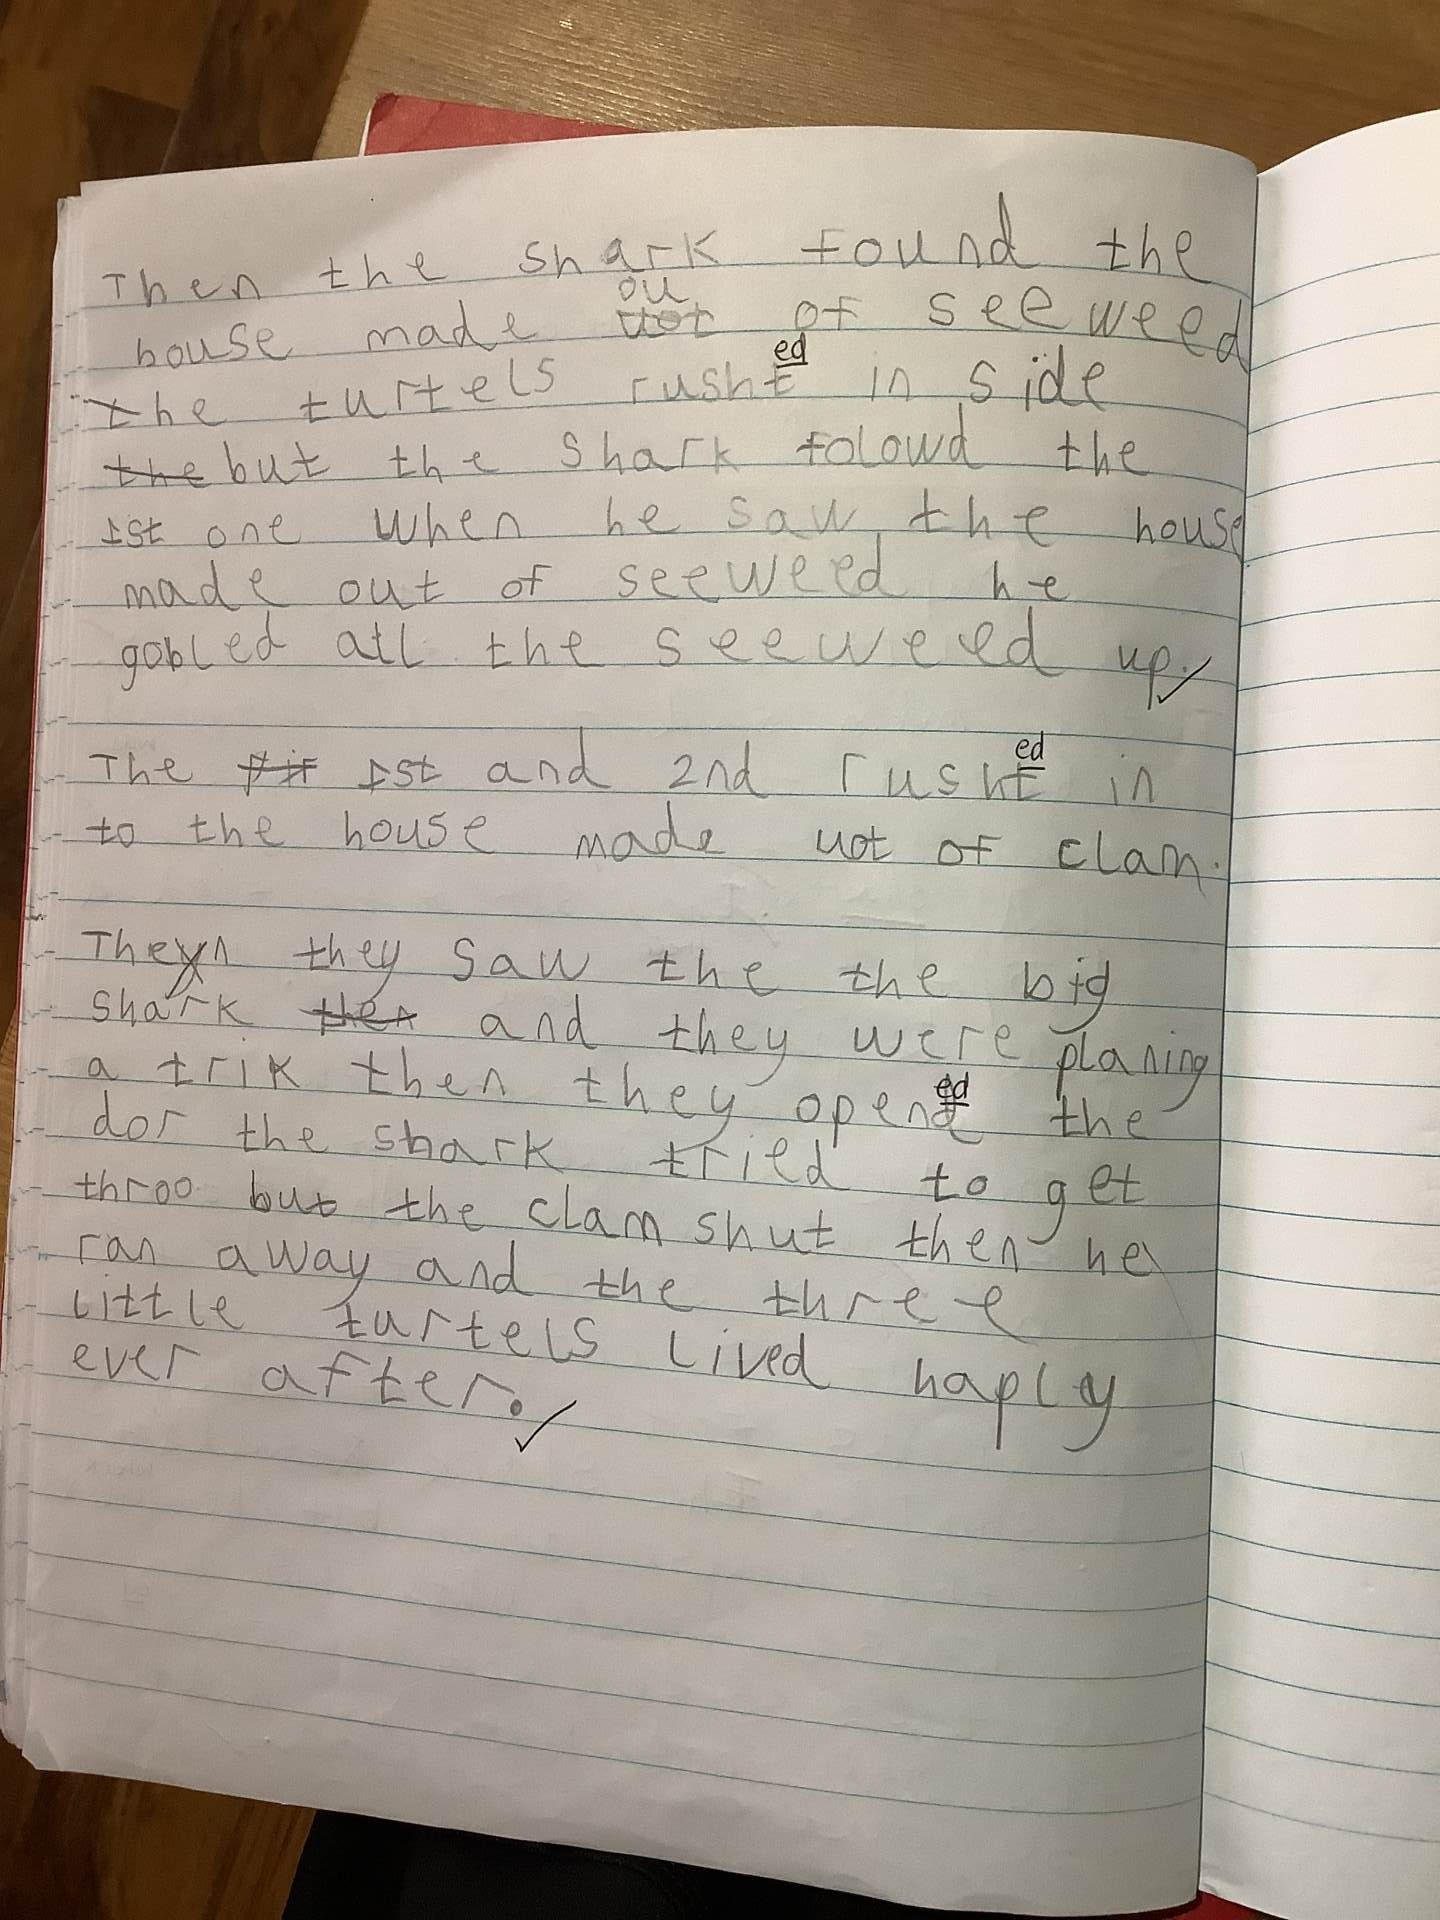 Then the shark found the
ou
house made uot of seeweed
ed
the turtels rusht in side
the but the shark folowd the
1st one when he saw the house
made out of seeweed he
gobled all the seeweed up.
ed
The fir 1st and 2nd rusht in
to the house made uot of clam.
Theyn they saw the the big
shark then and they were planing
a trik then they opend the
ed
dor the shark tried to get
throo but the clam shut then he
ran away and the three
little turtels lived haply
ever after.